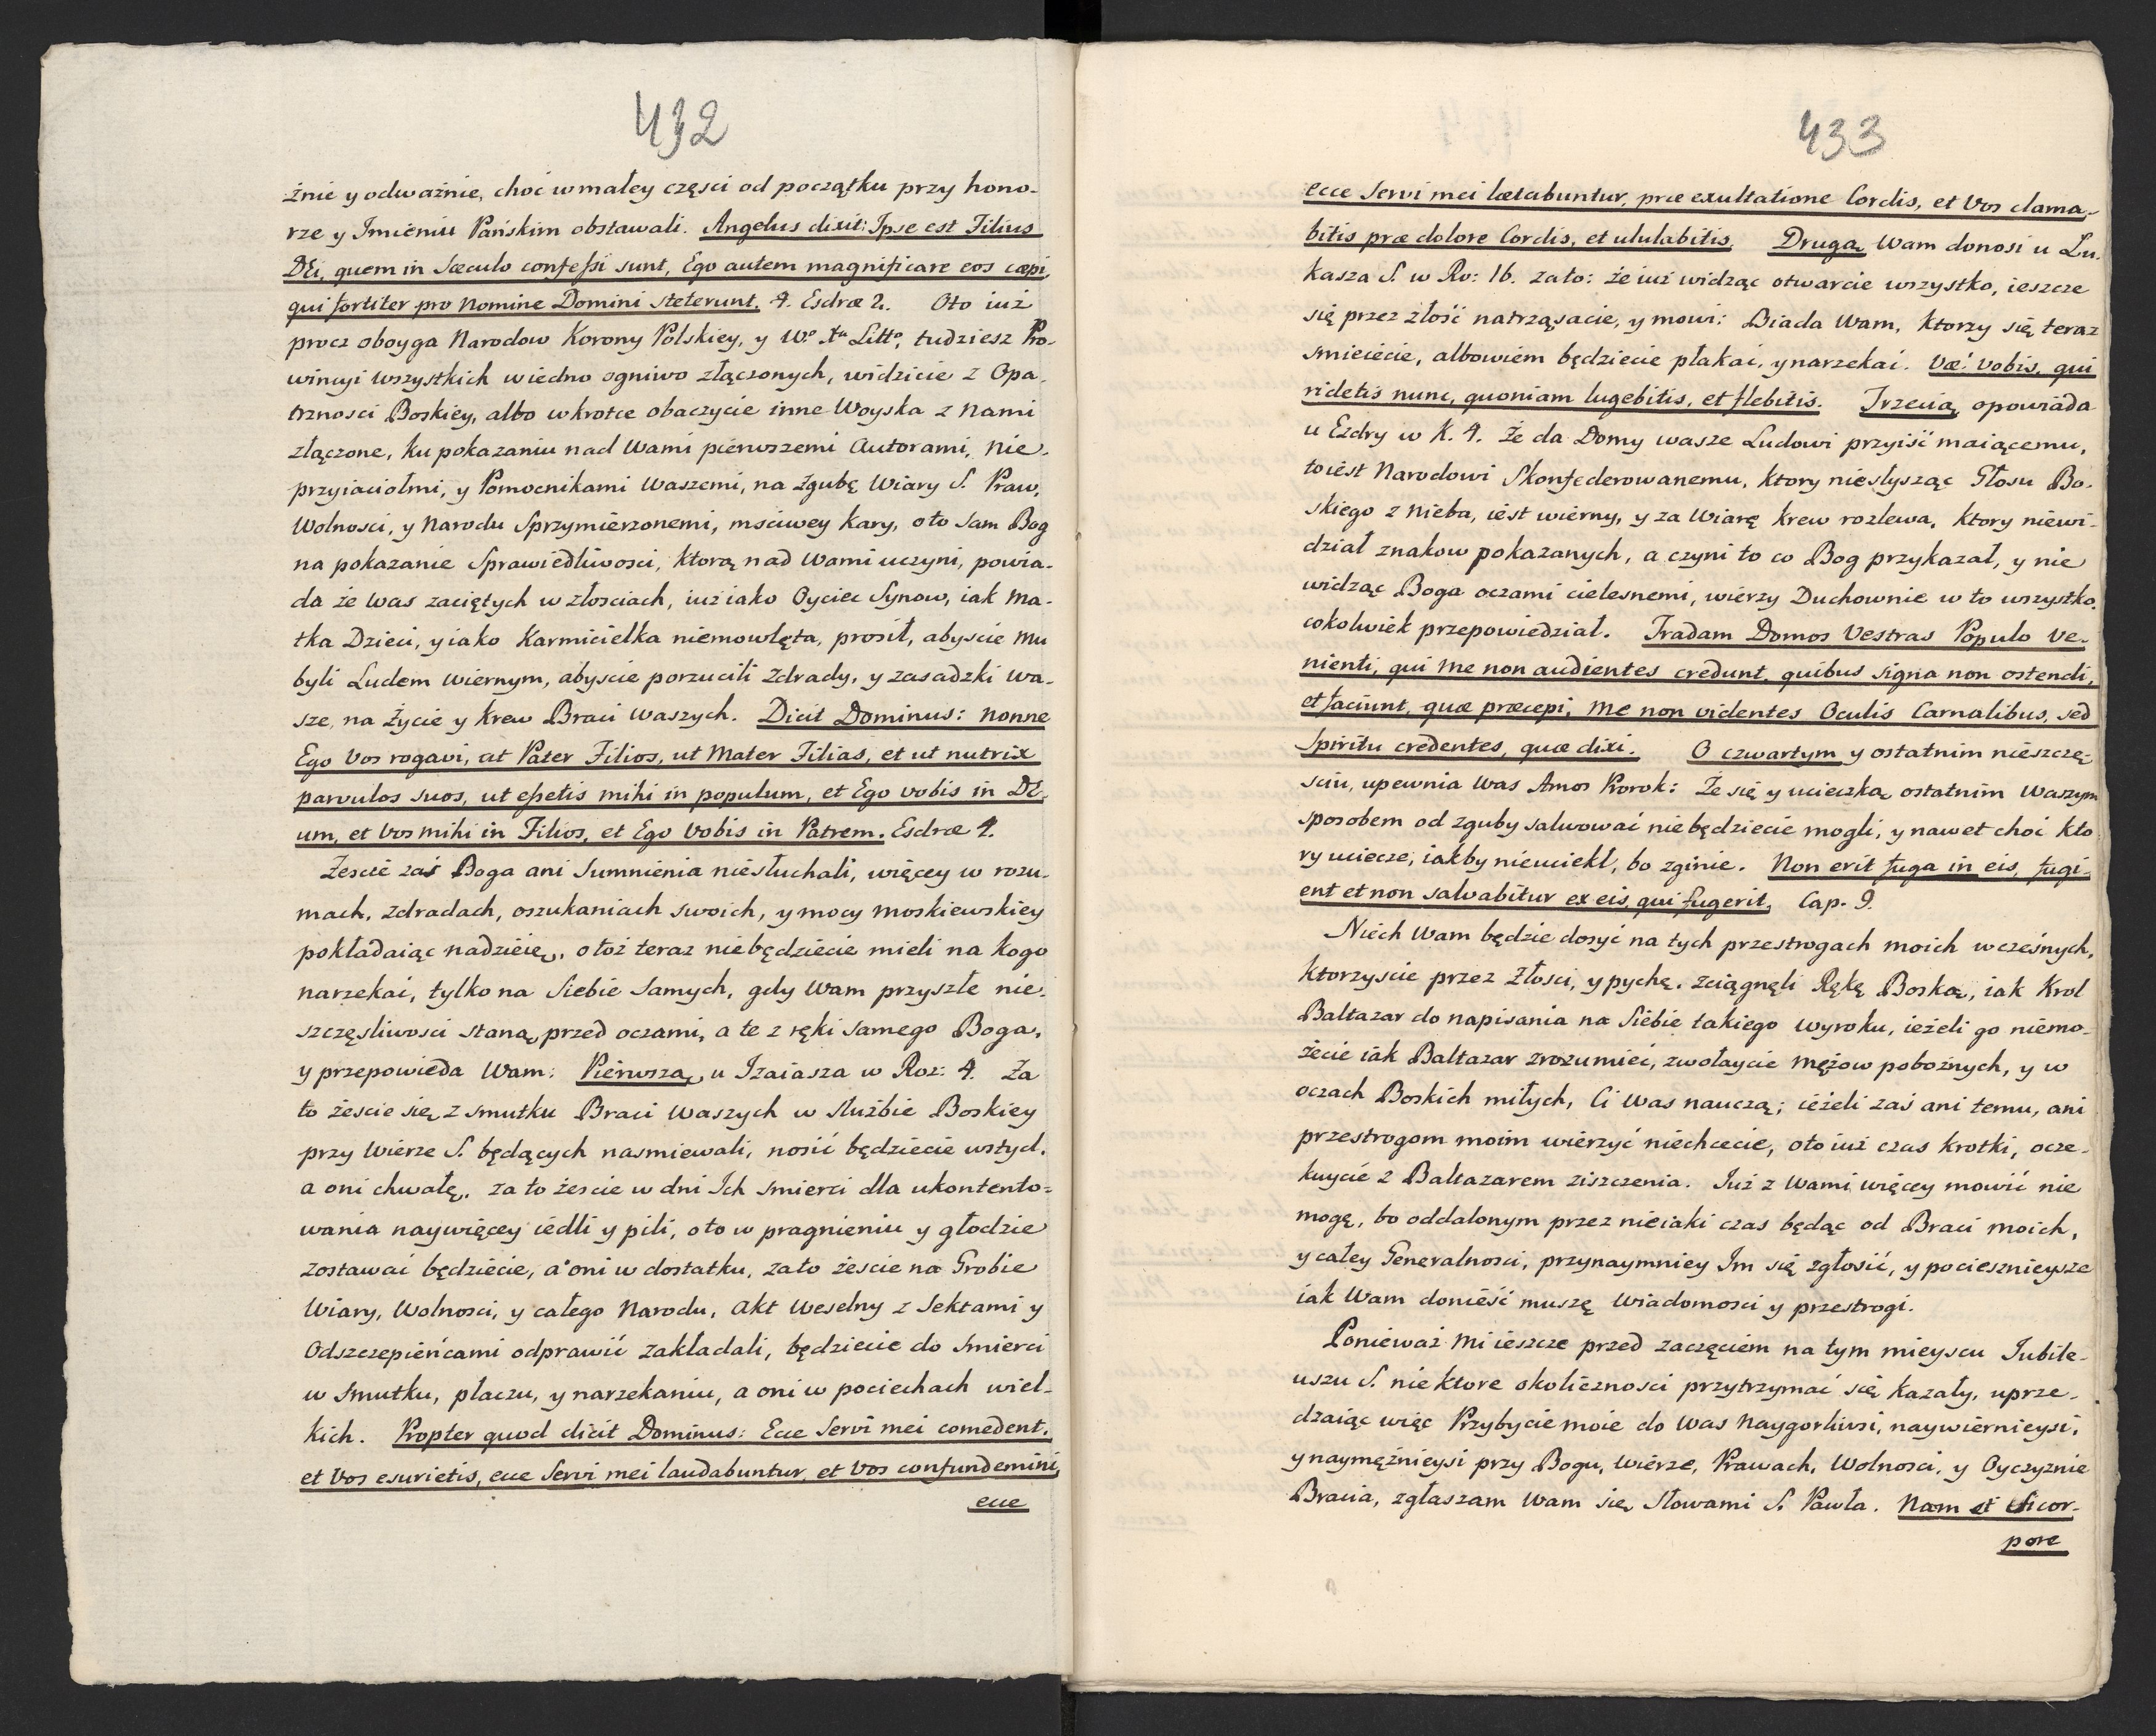 432
żnie y odważnie, choć w małey części od początku przy hono-
rze y Imieniu Pańskim obstawali. Angelus dixit: Ipse est Filius
DEi, quem in Sæculo confessi sunt, Ego autem magnificare eos cæpi,
qui fortiter pro Nomine Domini steterunt. 4. Esdræ 2. Oto iuż
procz oboyga Narodow Korony Polskiey, y Wo Xa Litto, tudziesz Pro-
wincyi wszystkich wiedno ogniwo złączonych, widzicie z Opa-
trznosci Boskiey, albo wkrotce obaczycie inne Woyska z Nami
złączone, ku pokazaniu nad Wami pierwszemi Autorami, Nie-
przyiaciołmi, y Pomocnikami Waszemi, na zgubę Wiary S. Praw,
Wolnosci, y Narodu Sprzymierzonemi, msciwey Kary, oto Sam Bog
na pokazanie Sprawiedliwosci, ktorą nad Wami uczyni, powia-
da że Was zaciętych w złosciach, iuż iako Oyciec Synow, iak Ma-
tka Dzieci, y iako Karmicielka niemowlęta, prosił, abyscie Mu
byli Ludem Wiernym, abyscie porzucili Zdrady, y zasadzki Wa-
sze, na życie y Krew Braci Waszych. Dicit Dominus: Nonne
Ego Vos rogavi, ut Pater Filios, ut Mater Filias, et ut nutrix
parvulos suos, ut essetis mihi in populum, et Ego vobis in DE-
um, et Vos mihi in Filios, et Ego Vobis in Patrem. Esdræ 4.
Żescie zaś Boga ani Sumnienia niesłuchali, więcey w rozu-
mach, Zdradach, oszukaniach swoich, y mocy Moskiewskiey
pokładaiąc nadzieię, otoż teraz niebędziecie mieli na kogo
narzekać, tylko na Siebie Samych, gdy Wam przyszłe nie-
szczęsliwosci staną przed oczami, a te z ręki samego Boga,
y przepowieda Wam: Pierwszą u Izaiasza w Roz: 4. Za
to żescie się z smutku Braci Waszych w Służbie Boskiey
przy Wierze S. będących nasmiewali, nosić będziecie wstyd,
a oni chwałę, za to żescie w dni Ich smierci dla ukontento-
wania naywięcey iedli y pili, oto w pragnieniu y głodzie
zostawać będziecie, a oni w dostatku, zato żescie na Grobie
Wiary, Wolnosci, y całego Narodu, Akt Weselny z Sektami y
Odszczepieńcami odprawić zakładali, będziecie do Smierci
w Smutku, płaczu, y narzekaniu, a oni w pociechach wiel-
kich. Propter quod dicit Dominus: Ecce Servi mei comedent,
et Vos esurietis, ecce Servi mei laudabuntur, et Vos confundemini,
ecce
433
ecce Servi mei lætabuntur, præ exultatione Cordis, et Vos clama-
bitis præ dolore Cordis, et ululabitis. Drugą Wam donosi u Lu-
kasza S. w Ro: 16. zato: że iuż widząc otwarcie wszystko, ieszcze
się przez złość natrząsacie, y mowi: Biada Wam, ktorzy się teraz
smieiecie, albowiem będziecie płakać, y narzekać. Væ! Vobis, qui
ridetis nunc, quoniam lugebitis, et flebitis. Trzecią opowiada
u Ezdry w K. 4. że da Domy wasze Ludowi przyiść maiącemu,
toiest Narodowi Skonfederowanemu, ktory niesłysząc Głosu Bo-
skiego z Nieba, iest wierny, y za Wiarę Krew rozlewa, ktory niewi-
dział znakow pokazanych, a czyni to co Bog przykazał, y nie
widząc Boga oczami cielesnemi, wierzy Duchownie w to wszystko,
cokolwiek przepowiedział. Tradam Domos Vestras Populo Ve-
nienti, qui Me non audientes credunt, quibus Signa non ostendi,
et faciunt, quæ præcepi, Me non videntes Oculis Carnalibus, sed
Spiritu credentes, quæ dixi. O czwartym y ostatnim nieszczę-
sciu, upewnia Was Amos Prorok: Że się y ucieczką ostatnim Waszym
sposobem od zguby salwować niebędziecie mogli, y nawet choć kto-
ry uciecze, iakby nieuciekł, bo zginie. Non erit fuga in eis, fugi-
ent et non salvabitur ex eis, qui fugerit. Cap. 9.
Niech Wam będzie dosyć na tych przestrogach moich wczesnych,
ktorzyscie przez Złosci, y pychę, zciągnęli Rękę Boską, iak Krol
Baltazar do napisania na Siebie takiego wyroku, ieżeli go niemo-
żecie iak Baltazar zrozumieć, zwołaycie Mężow pobożnych, y w
oczach Boskich miłych, Ci Was nauczą; ieżeli zaś ani temu, ani
przestrogom moim wierzyć niechcecie, oto iuż czas krotki, ocze-
kuycie z Baltazarem ziszczenia. Już z Wami więcey mowić nie
mogę, bo oddalonym przez nieiaki czas będąc od Braci moich,
y całey Generalnosci, przynaymniey Im się zgłosić, y pociesznieysze
iak Wam donieść muszę Wiadomosci y przestrogi.
Ponieważ Mi ieszcze przed zaczęciem na tym mieyscu Jubile-
uszu S. niektore okolicznosci przytrzymać się kazały, uprze-
dzaiąc więc Przybycie moie do Was Naygorliwsi, naywiernieysi,
y naymężnieysi przy Bogu, Wierze, Prawach, Wolnosci, y Oyczyznie
Bracia, zgłaszam Wam się Słowami S. Pawła. Nam et si cor-
pore